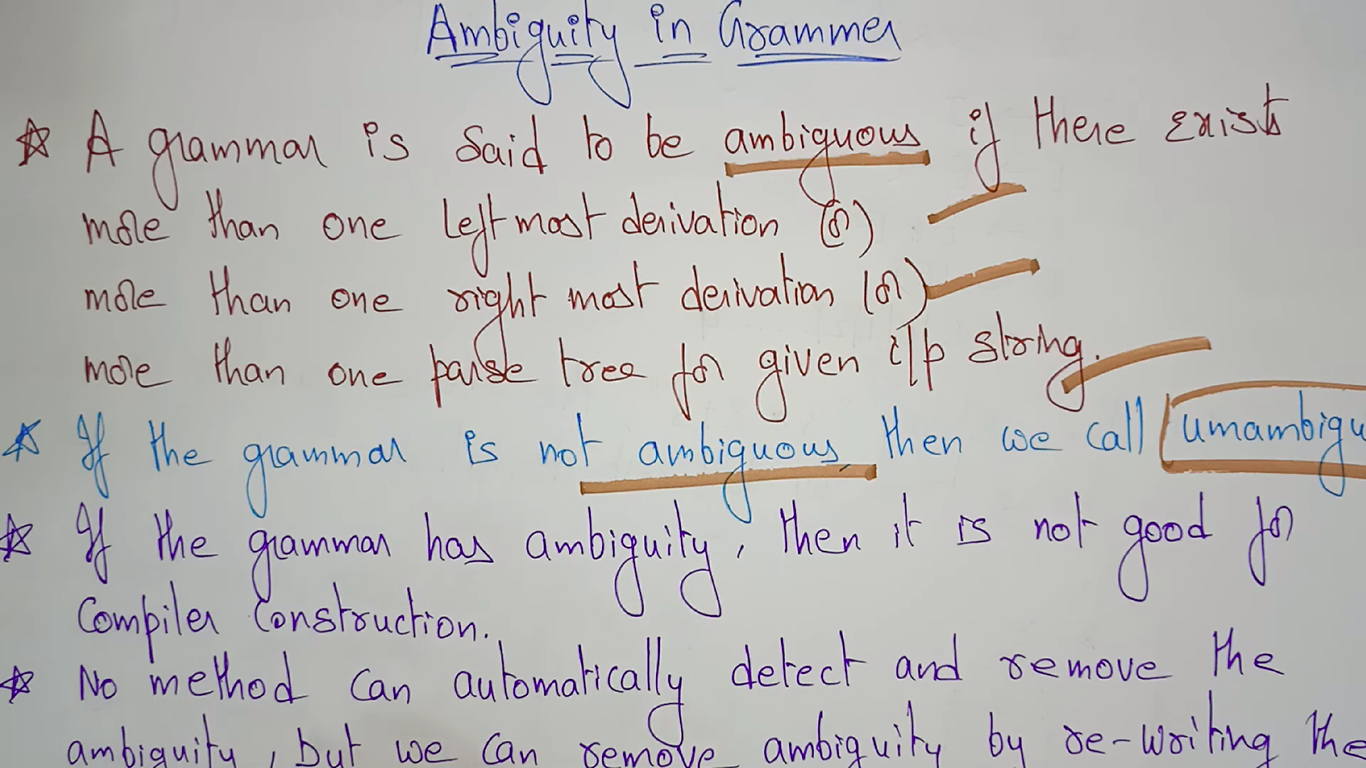 Ambiguity in Grammer
☆ A grammar is said to be ambiguous if there exist
more than one left most derivation (or)
more than one right most derivation (or)
more than one parse tree for given i/p string.
☆ If the grammar is not ambiguous then we call umambigu
☆ If the grammar has ambiguity, then it is not good for
Compiler Construction.
☆ No method can automatically detect and remove the
ambiguity, but we can remove ambiguity by re-writing the